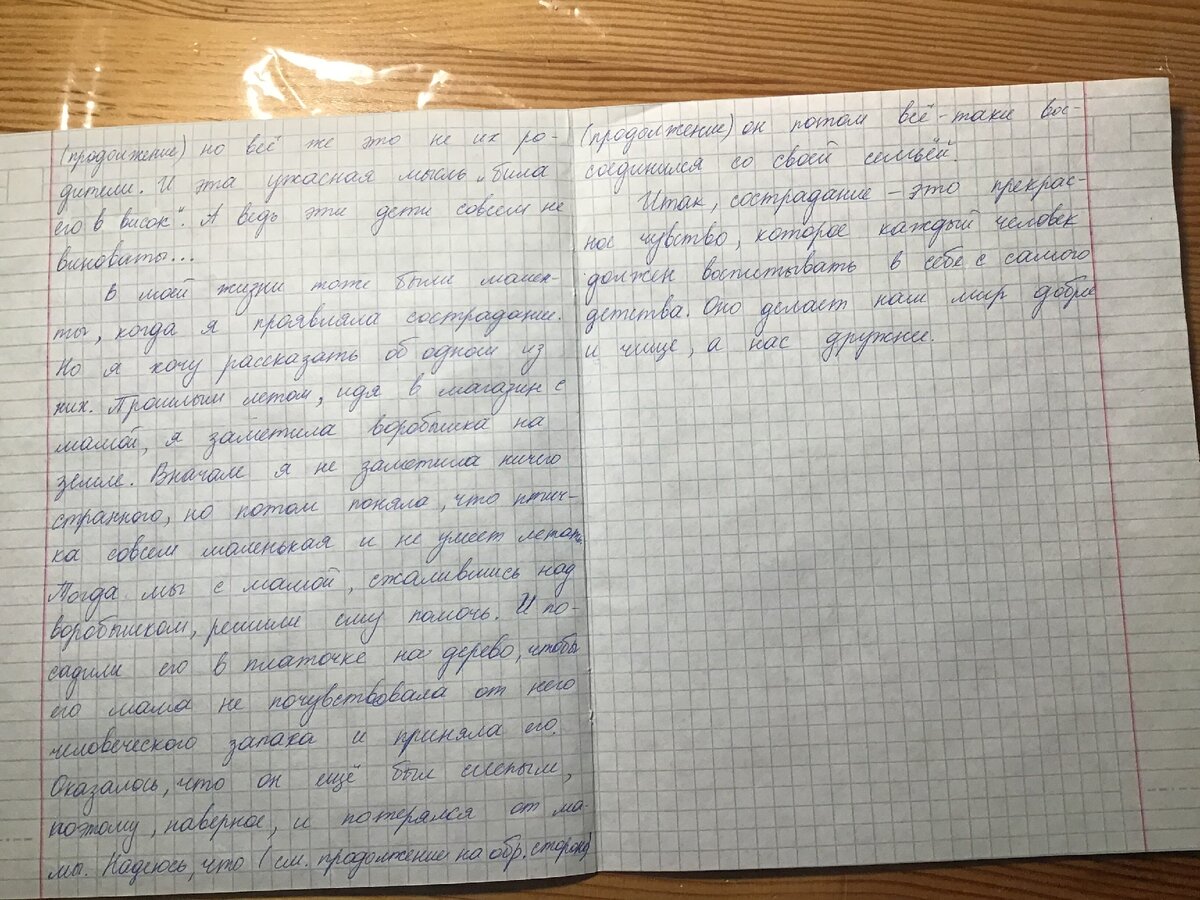 (продолжение) но всё же это не их ро-
дители. И эта ужасная мысль „била
его в висок". А ведь эти дети совсем не
виноваты...
В моей жизни тоже были момен-
ты, когда я проявляла сострадание.
Но я хочу рассказать об одном из
них. Прошлым летом, идя в магазин с
мамой, я заметила воробышка на
земле. Вначале я не заметила ничего
странного, но потом поняла, что птич-
ка совсем маленькая и не умеет летать.
Тогда мы с мамой, сжалившись над
воробышком, решили ему помочь. И по-
садили его в платочке на дерево, чтобы
его мама не почувствовала от него
человеческого запаха и приняла его.
Оказалось, что он ещё был слепым,
поэтому, наверное, и потерялся от ма-
мы. Надеюсь, что (см. продолжение на обр. стороне)
(продолжение) он потом всё-таки вос-
соединился со своей семьёй.
Итак, сострадание – это прекрас-
ное чувство, которое каждый человек
должен воспитывать в себе с самого
детства. Оно делает наш мир добрее
и чище, а нас дружнее.